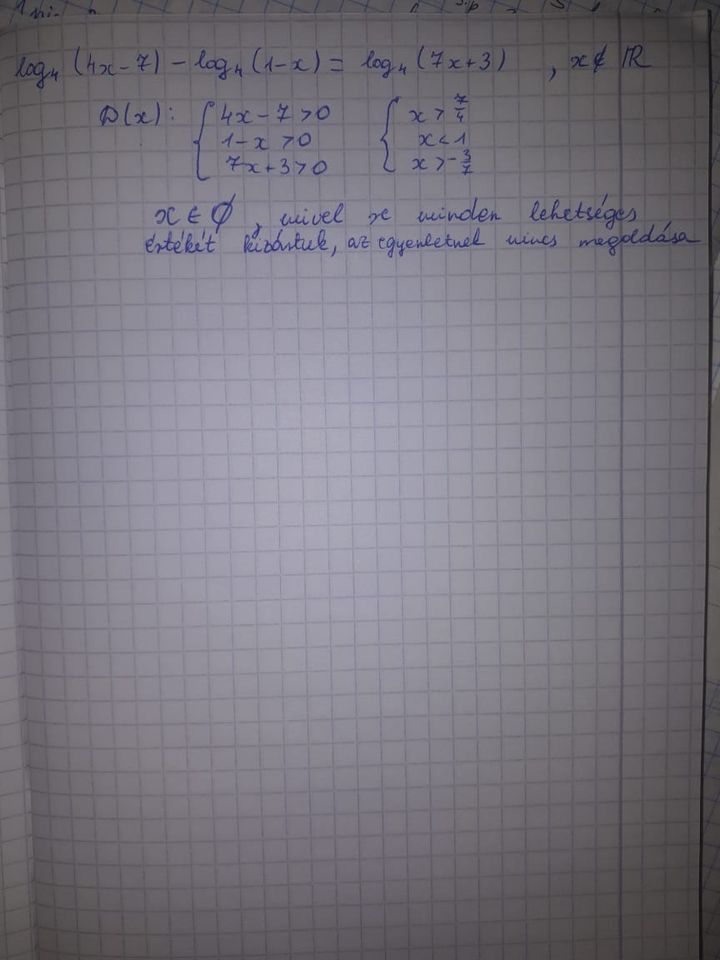 log₄ (4x-7) - log₄ (1-x) = log₄ (7x+3) , x∉ ℝ
D(x): { 4x-7 >0 { x > 7/4
1-x >0 x < 1
7x+3 >0 x > -3/7
x ∈ ∅ , mivel x minden lehetséges
értékét kizártuk, az egyenletnek nincs megoldása